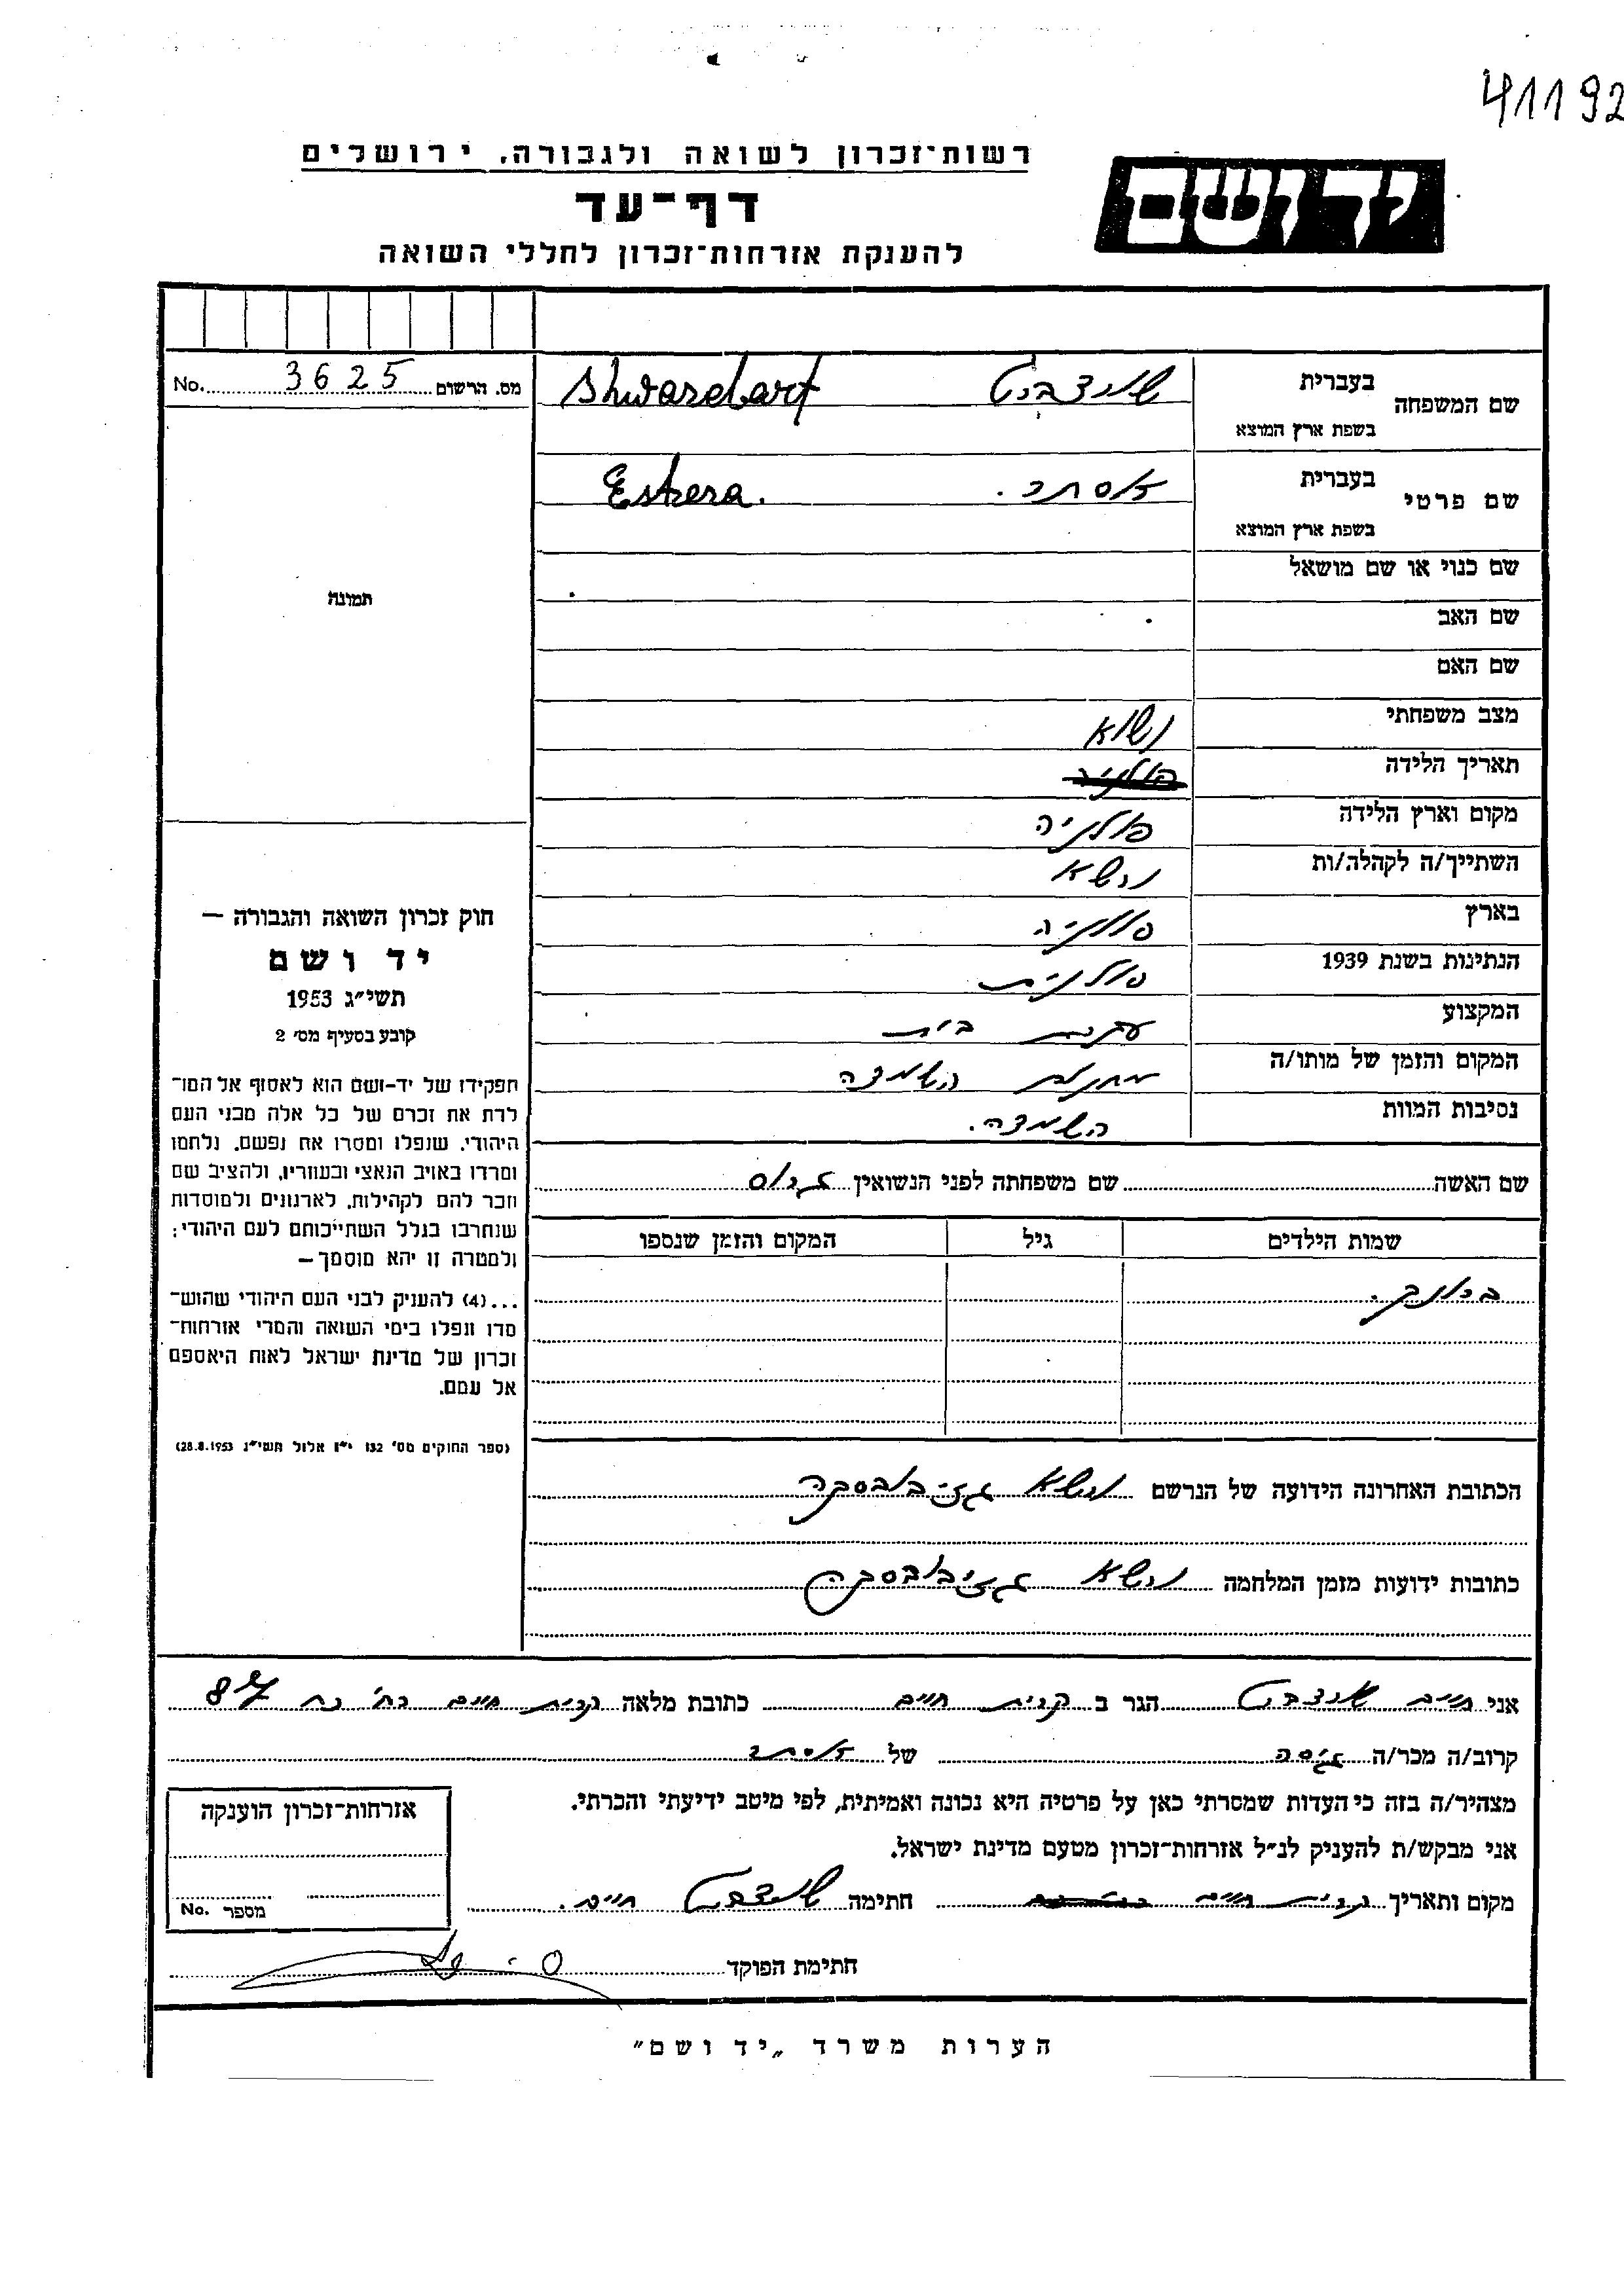 41192
רשות־זכרון לשואה ולגבורה, ירושלים
יד ושם
דף־עד
להענקת אזרחות־זכרון לחללי השואה
מס. הרשום 3625 No.
שם המשפחה
בעברית
שורצברט Shwarzbart
בשפת ארץ המוצא
שם פרטי
בעברית
אסתר. Estera.
בשפת ארץ המוצא
תמונה
שם כנוי או שם מושאל
שם האב
שם האם
מצב משפחתי נשוא
תאריך הלידה פולניה
מקום וארץ הלידה פולניה
השתייך/ה לקהלה/ות ורשא
בארץ פולניה
הנתינות בשנת 1939 פולנית
המקצוע עקרת בית
המקום והזמן של מותו/ה מחנות השמדה
נסיבות המוות השמדה.
שם האשה שם משפחתה לפני הנשואין
שמות הילדים גיל המקום והזמן שנספו
חוק זכרון השואה והגבורה —
יד ושם
תשי״ג 1953
קובע בסעיף מס׳ 2
תפקידו של יד-ושם הוא לאסוף אל המו־
לדת את זכרם של כל אלה מבני העם
היהודי, שנפלו ומסרו את נפשם, נלחמו
ומרדו באויב הנאצי ובעוזריו, ולהציב שם
וזכר להם לקהילות, לארגונים ולמוסדות
שנחרבו בגלל השתייכותם לעם היהודי;
ולמטרה זו יהא מוסמך—
...(4) להעניק לבני העם היהודי שהוש־
מדו ונפלו בימי השואה והמרי אזרחות־
זכרון של מדינת ישראל לאות היאספם
אל עמם.
(ספר החוקים מס׳ 132 י״ז אלול תשי״ג 28.8.1953)
הכתובת האחרונה הידועה של הנרשם ורשא גז׳יבובסקה
כתובות ידועות מזמן המלחמה ורשא גז׳יבובסקה
אני חיים שורצברט הגר ב קרית חיים כתובת מלאה קרית חיים רח׳ כח 87
קרוב/ה מכר/ה גיסה של אסתר
מצהיר/ה בזה כי העדות שמסרתי כאן על פרטיה היא נכונה ואמיתית, לפי מיטב ידיעתי והכרתי.
אני מבקש/ת להעניק לנ״ל אזרחות־זכרון מטעם מדינת ישראל.
מקום ותאריך קרית חיים חתימה שורצברט חיים.
אזרחות־זכרון הוענקה
מספר No.
חתימת הפוקד
הערות משרד „יד ושם״